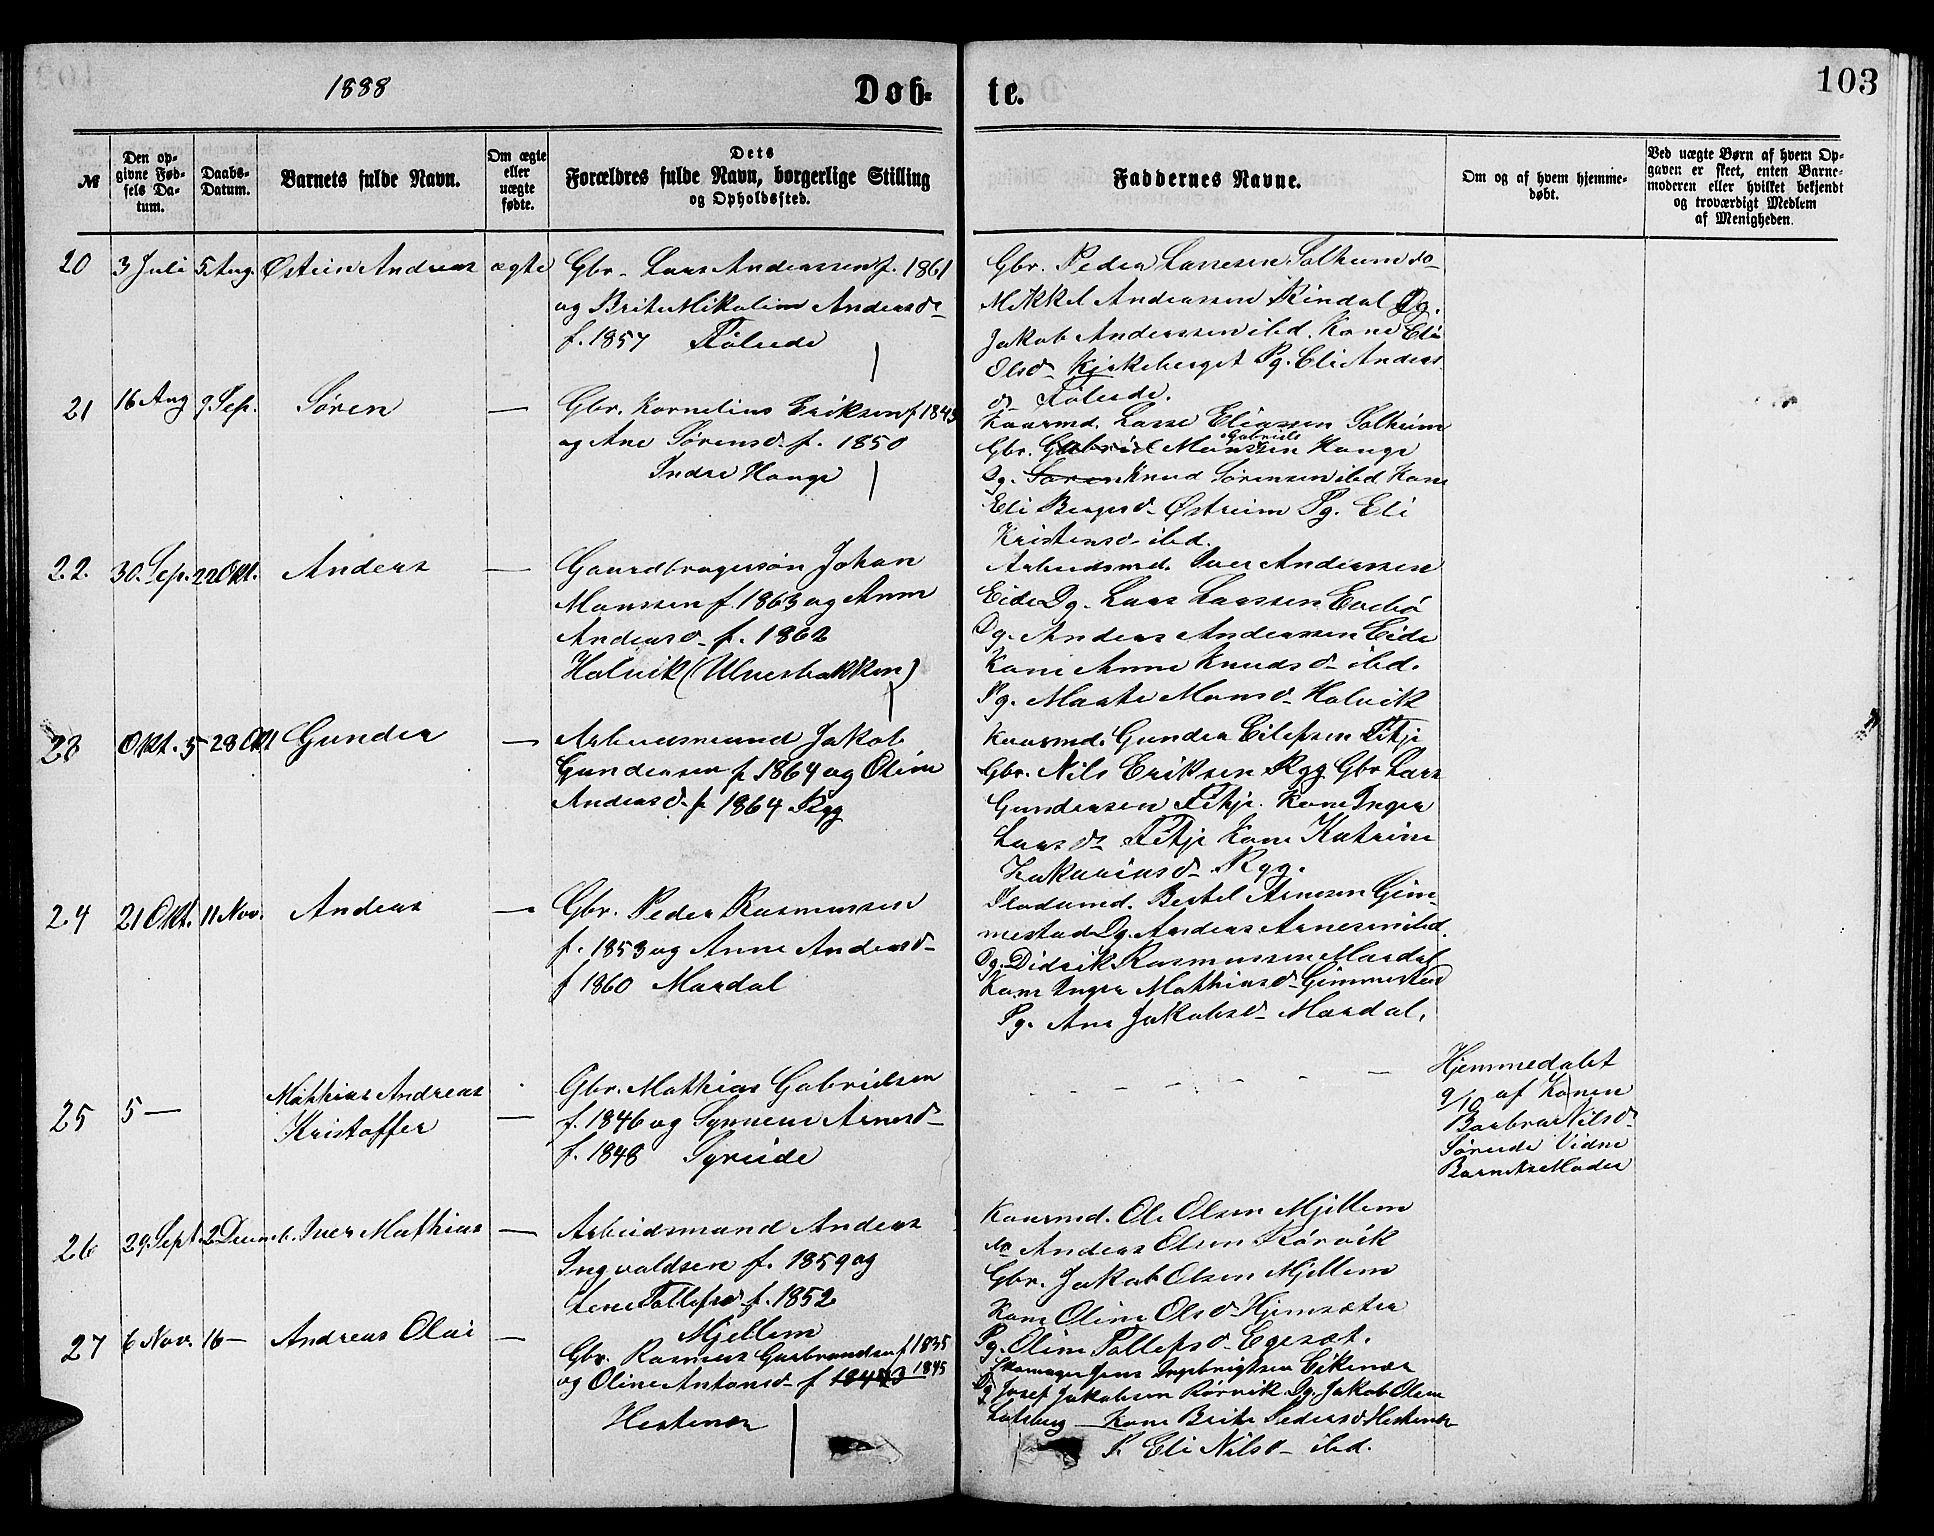 1888
Døb-
te.
103
№
Den op-
givne Fød-
sels Da-
tum.
Daabs-
Datum.
Barnets fulde Navn.
Om ægte
eller
uægte
fødte.
Dets
Forældres fulde Navn, borgerlige Stilling
og Opholdssted.
Faddernes Navne.
Om og af hvem hjemme-
døbt.
Ved uægte Børn af hvem Op-
gaven er skeet, enten Barne-
moderen eller hvilket bekjendt
og troværdigt Medlem
af Menigheden.
20 3 Juli 5 Aug. Østein Andreas ægte
Gbr. Lars Anderssen f. 1861
og Brite Mikaline Andersd
f. 1857
Gbr. Peder Larssen Solheim do
Mikkel Anderssen Rindal Pg.
Jakob Anderssen ibd. Kone Eli
Olsd Kjøkeberget Pg. Eli Anders
d
21 16 Aug 9 Sep. Søren —
Gbr. Kornelius Eriksen f 1849
og Ane Sørensd f. 1850
Indre Hauge
Kaarmd. Lasse Eliassen Solheim
Gbr. Gabriel Monssen Gabriels Hauge
Søren Knud Sørensen ibd Kone
Eli Bergersd Østreim Pg. Eli
Kristensd ibd.
22. 30. Sep. 22 Okt. Anders —
Gaardbrugersøn Johan
Monssen f. 1863 og Anne
Andersd f. 1862
Holvik (Ulvesbakken)
Arbeidsmd. Iver Anderssen
Eide Dg. Lars Larssen Evebø
Dg. Anders Anderssen Eide
Kone Anne Knudsd ibd.
Pg. Marte Monsd Holvik
23 Okt. 5 28 Okt Gunder —
Arbeidsmand Jakob
Gundersen f. 1864 og Oline
Andersd f 1864 Ryg
Kaarmd. Gunder Eilefsen Fitje
Gbr. Nils Eriksen Ryg Gbr Lars
Gundersen Fitje. Kone Inger
Larsd Fitje Kone Katrine
Zakariasd Ryg.
24 21 Okt. 11 Nov. Anders —
Gbr. Peder Rasmussen
f. 1853 og Anne Andersd
f 1860 Mardal
Bertel Arnesen Gim-
mestad Dg. Anders Arnesen ibd.
Dg. Didrik Rasmussen Mardal
Kone Inger Mathiasd Gimmestad
Pg. Ane Jakobsd Mardal.
25 5 — Mathias Andreas
Kristoffer —
Gbr. Mathias Gabrielsen
f. 1846 og Synneve Arnesd
f. 1848 Syreide
Hjemmedøbt
9/10 af Konen
Barbra Nilsd
Vidne
Barnets Moder
26 29. Sept. 2 Decemb. Iver Mathias —
Arbeidsmand Anders
Ingvaldsen f. 1859 og
Lene Tollefsd f. 1852
Mjellem
Kaarmd. Ole Olsen Mjellem
do Anders Olsen Rørvik
Gbr. Jakob Olsen Mjellem
Kone Oline Olsd Hjemsæter
Pg. Oline Tollefsd Egesæt.
27 6 Nov. 16 — Andreas Olai —
Gbr. Rasmus Gudbrandsen f 1835
og Oline Antonsd f 1843 1845
Hestenes
Skomager Jens Ingebrigtsen Eikenes
Dg Josef Jakobsen Rørvik Dg. Jakob Olsen
Lotsberg — Kone Brite Pedersd Hestenes
P. Eli Nilsd ibd.